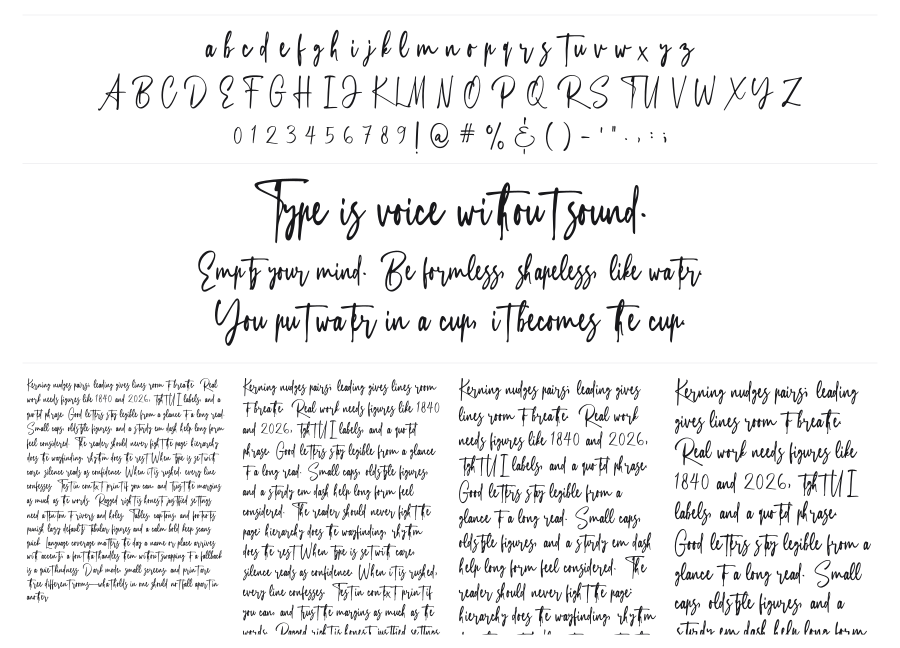 a b c d e f g h i j k l m n o p q r s t u v w x y z
A B C D E F G H I J K L M N O P Q R S T U V W X Y Z
0 1 2 3 4 5 6 7 8 9 ! @ # % & ( ) - ' " . , : ;
Type is voice without sound.
Empty your mind. Be formless, shapeless, like water.
You put water in a cup, it becomes the cup.
Kerning nudges pairs; leading gives lines room to breathe. Real
work needs figures like 1840 and 2026, tight UI labels, and a
quoted phrase. Good letters stay legible from a glance to a long read.
Small caps, oldstyle figures, and a sturdy em dash help long form
feel considered. The reader should never fight the page; hierarchy
does the wayfinding, rhythm does the rest. When type is set with
care, silence reads as confidence. When it is rushed, every line
confesses. Test in context, print if you can, and trust the margins
as much as the words. Ragged right is honest; justified settings
need attention to rivers and holes. Tables, captions, and footnotes
punish lazy defaults. Tabular figures and a calm bold keep scans
quick. Language coverage matters the day a name or place arrives
with accents; a font that handles them without swapping to a fallback
is a quiet kindness. Dark mode, small screens, and print are
three different rooms—what holds in one should not fall apart in
another.
Kerning nudges pairs; leading gives lines room
to breathe. Real work needs figures like 1840
and 2026, tight UI labels, and a quoted
phrase. Good letters stay legible from a glance
to a long read. Small caps, oldstyle figures,
and a sturdy em dash help long form feel
considered. The reader should never fight the
page; hierarchy does the wayfinding, rhythm
does the rest. When type is set with care,
silence reads as confidence. When it is rushed,
every line confesses. Test in context, print if
you can, and trust the margins as much as the
words. Ragged right is honest; justified settings
Kerning nudges pairs; leading gives
lines room to breathe. Real work
needs figures like 1840 and 2026,
tight UI labels, and a quoted phrase.
Good letters stay legible from a
glance to a long read. Small caps,
oldstyle figures, and a sturdy em dash
help long form feel considered. The
reader should never fight the page;
hierarchy does the wayfinding, rhythm
Kerning nudges pairs; leading
gives lines room to breathe.
Real work needs figures like
1840 and 2026, tight UI
labels, and a quoted phrase.
Good letters stay legible from a
glance to a long read. Small
caps, oldstyle figures, and a
sturdy em dash help long form